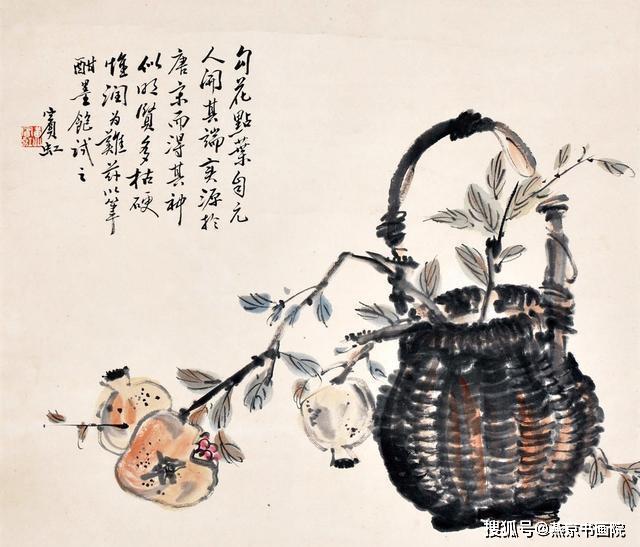 勾花點葉自元
人開其端实源於
唐宋而得其神
似明賢多枯硬
惟润为難茲以筆
酣墨飽試之
賓虹
搜狐号@燕京书画院